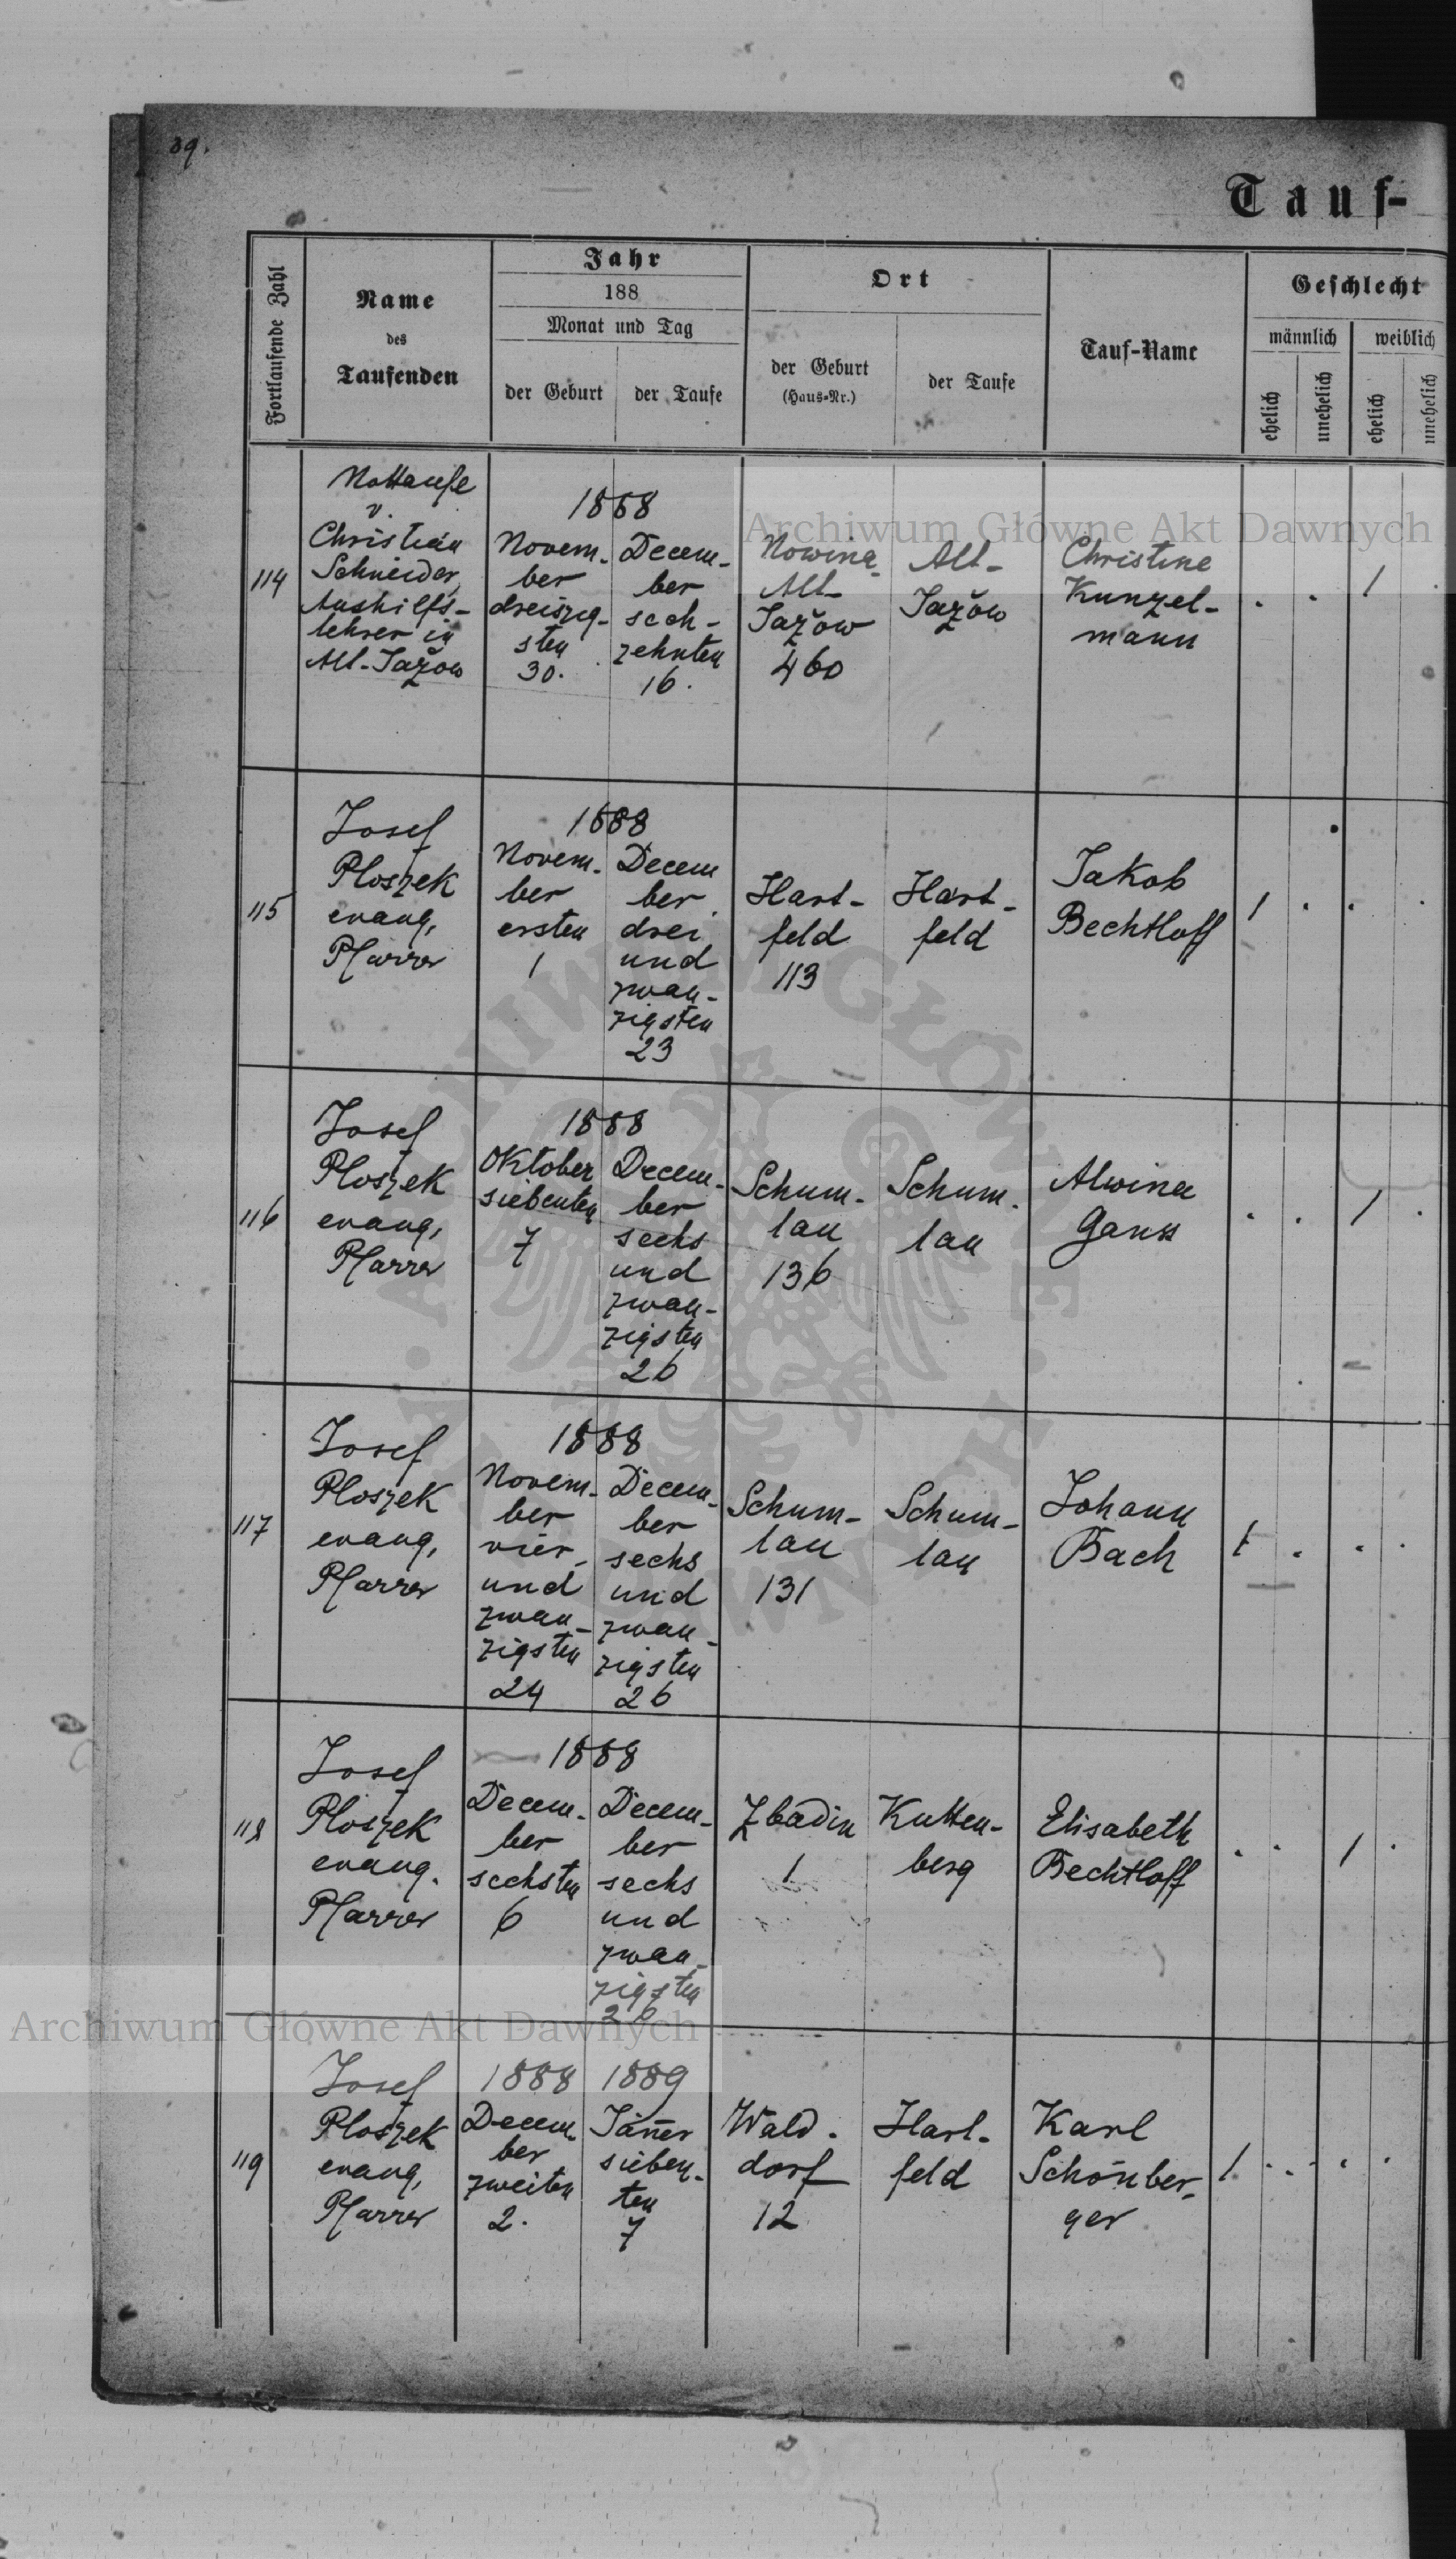 39.
Tauf-
Fortlaufende Zahl
Name
des
Taufenden
Jahr
188
Monat und Tag
der Geburt
der Taufe
Ort
der Geburt
(Haus-Nr.)
der Taufe
Tauf-Name
Geschlecht
männlich
weiblich
ehelich
unehelich
ehelich
unehelich
114
Nottaufe
v.
Christian
Schneider,
Aushilfs-
lehrer in
Alt-Jażow
1888
Novem-
ber
dreiszig-
sten
30.
Decem-
ber
sech-
zehnten
16.
Nowina
Alt-
Jażow
460
Alt-
Jażow
Christine
Kunzel-
mann
. . 1 .
115
Josef
Ploszek
evang.
Pfarrer
1888
Novem-
ber
ersten
1
Decem
ber
drei
und
zwan-
zigsten
23
Hart-
feld
113
Hart-
feld
Jakob
Bechtloff
1 . . .
116
Josef
Ploszek
evang.
Pfarrer
1888
Oktober
siebenten
7
Decem-
ber
sechs
und
zwan-
zigsten
26
Schum-
lau
136
Schum-
lau
Alwina
Ganss
. . 1 .
117
Josef
Ploszek
evang.
Pfarrer
1888
Novem-
ber
vier-
und
zwan-
zigsten
24
Decem-
ber
sechs
und
zwan-
zigsten
26
Schum-
lau
131
Schum-
lau
Johann
Bach
1 . . .
118
Josef
Ploszek
evang.
Pfarrer
1888
Decem-
ber
sechsten
6
Decem-
ber
sechs
und
zwan-
zigsten
26
Zbadin
1
Kutten-
berg
Elisabeth
Bechtloff
. . 1 .
119
Josef
Ploszek
evang.
Pfarrer
1888
Decem-
ber
zweiten
2.
1889
Jäner
sieben-
ten
7
Wald-
dorf
12
Hart-
feld
Karl
Schönber-
ger
1 . . .
Archiwum Główne Akt Dawnych
Archiwum Główne Akt Dawnych
ARCHIWUM GŁÓWNE AKT DAWNYCH